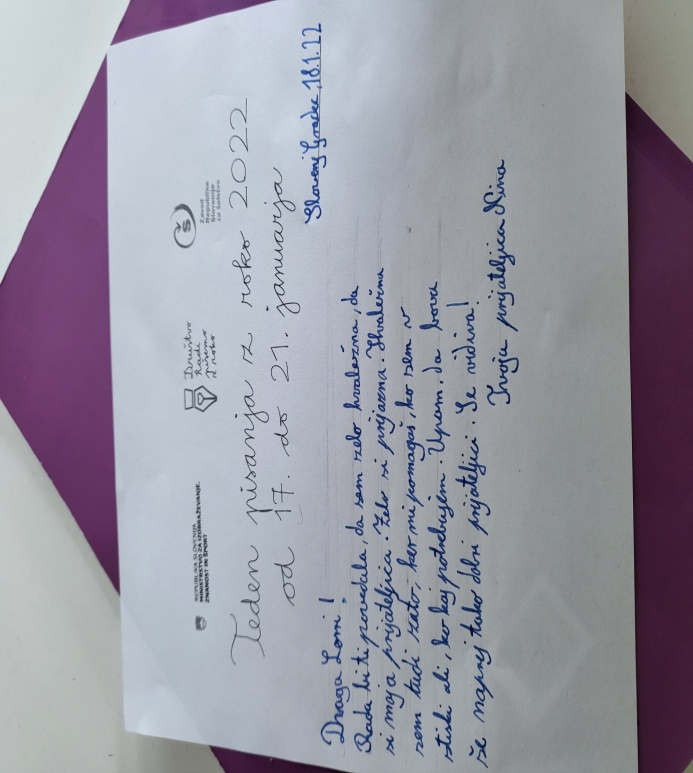 REPUBLIKA SLOVENIJA
MINISTRSTVO ZA IZOBRAŽEVANJE,
ZNANOST IN ŠPORT
Društvo
Radi
pišemo
z roko
Zavod
Republike
Slovenije
za šolstvo
Teden pisanja z roko 2022
od 17. do 21. januarja
Slovenj Gradec, 18.1.22
Draga Lomi!
Rada bi ti povedala, da sem zelo hvaležna, da
si moja prijateljica. Zelo si prijazna. Hvaležna
sem tudi zato, ker mi pomagaš, ko sem v
stiski ali, ko kaj potrebujem. Upam, da bova
še naprej tako dobri prijateljici. Se vidiva!
Tvoja prijateljica Nina